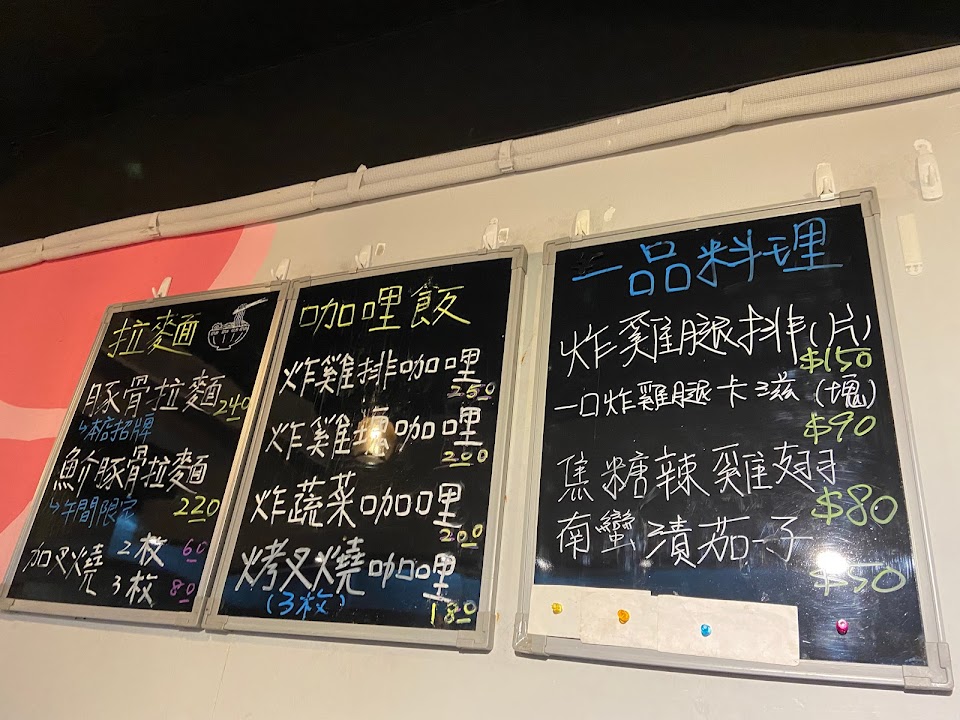 拉麵
豚骨拉麵 240
↳本店招牌
魚介豚骨拉麵
↳午間限定 220
加叉燒 2枚 60
3枚 80
咖哩飯
炸雞排咖哩
250
炸雞塊咖哩
200
炸蔬菜咖哩
200
烤叉燒咖哩
(3枚) 180
一品料理
炸雞腿排(片)
$150
一口炸雞腿卡滋(塊)
$90
焦糖辣雞翅
$80
南蠻漬茄子
$50